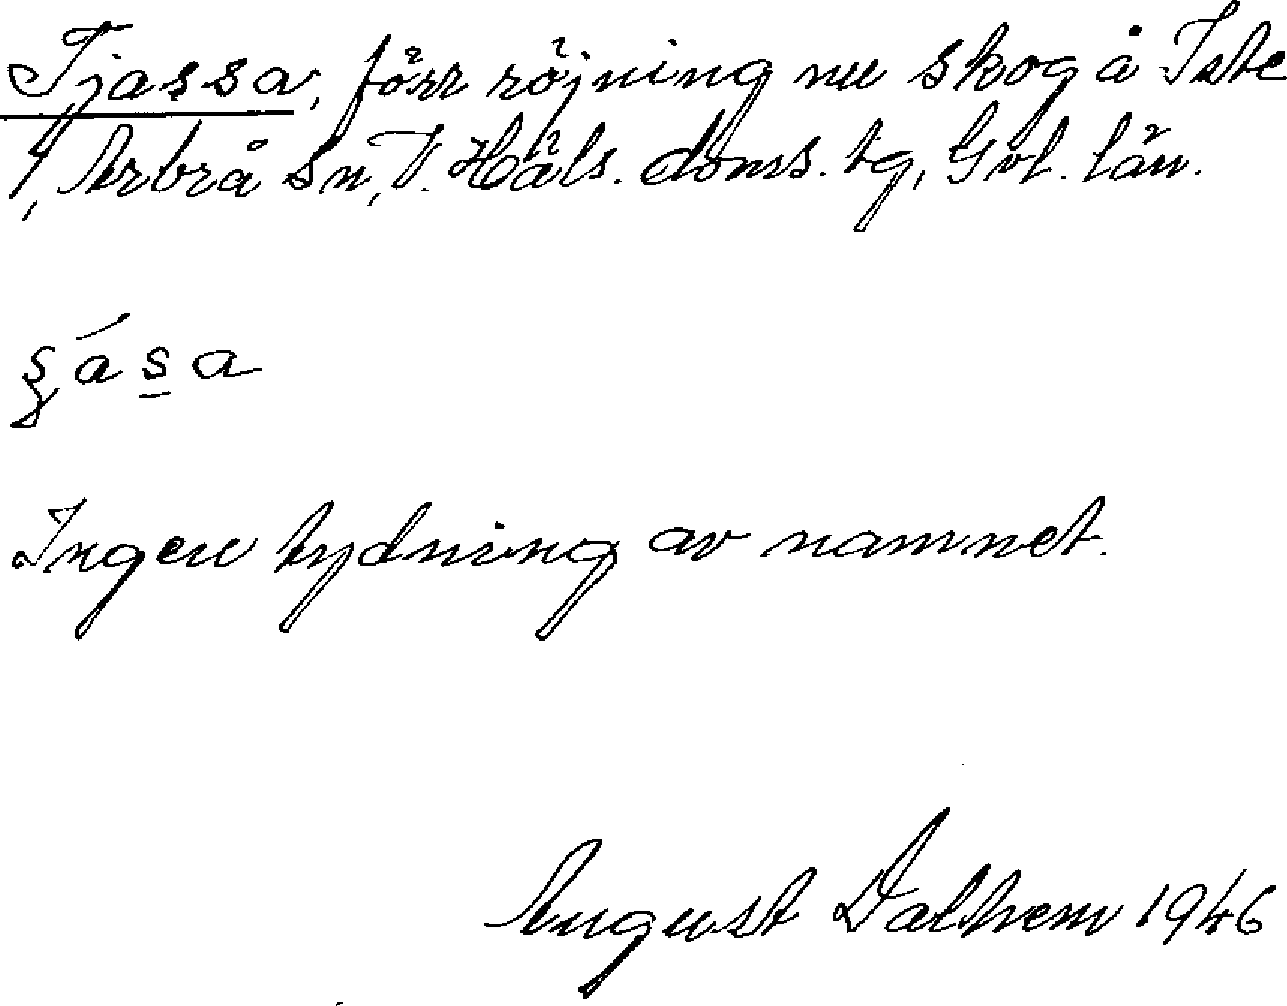 Tjassa, förr röjning nu skog å Iste
4, Arbrå sn, V. Häls. doms. tg, Gvl. län.
ʂása
Ingen tydning av namnet.
August Dalhem 1946